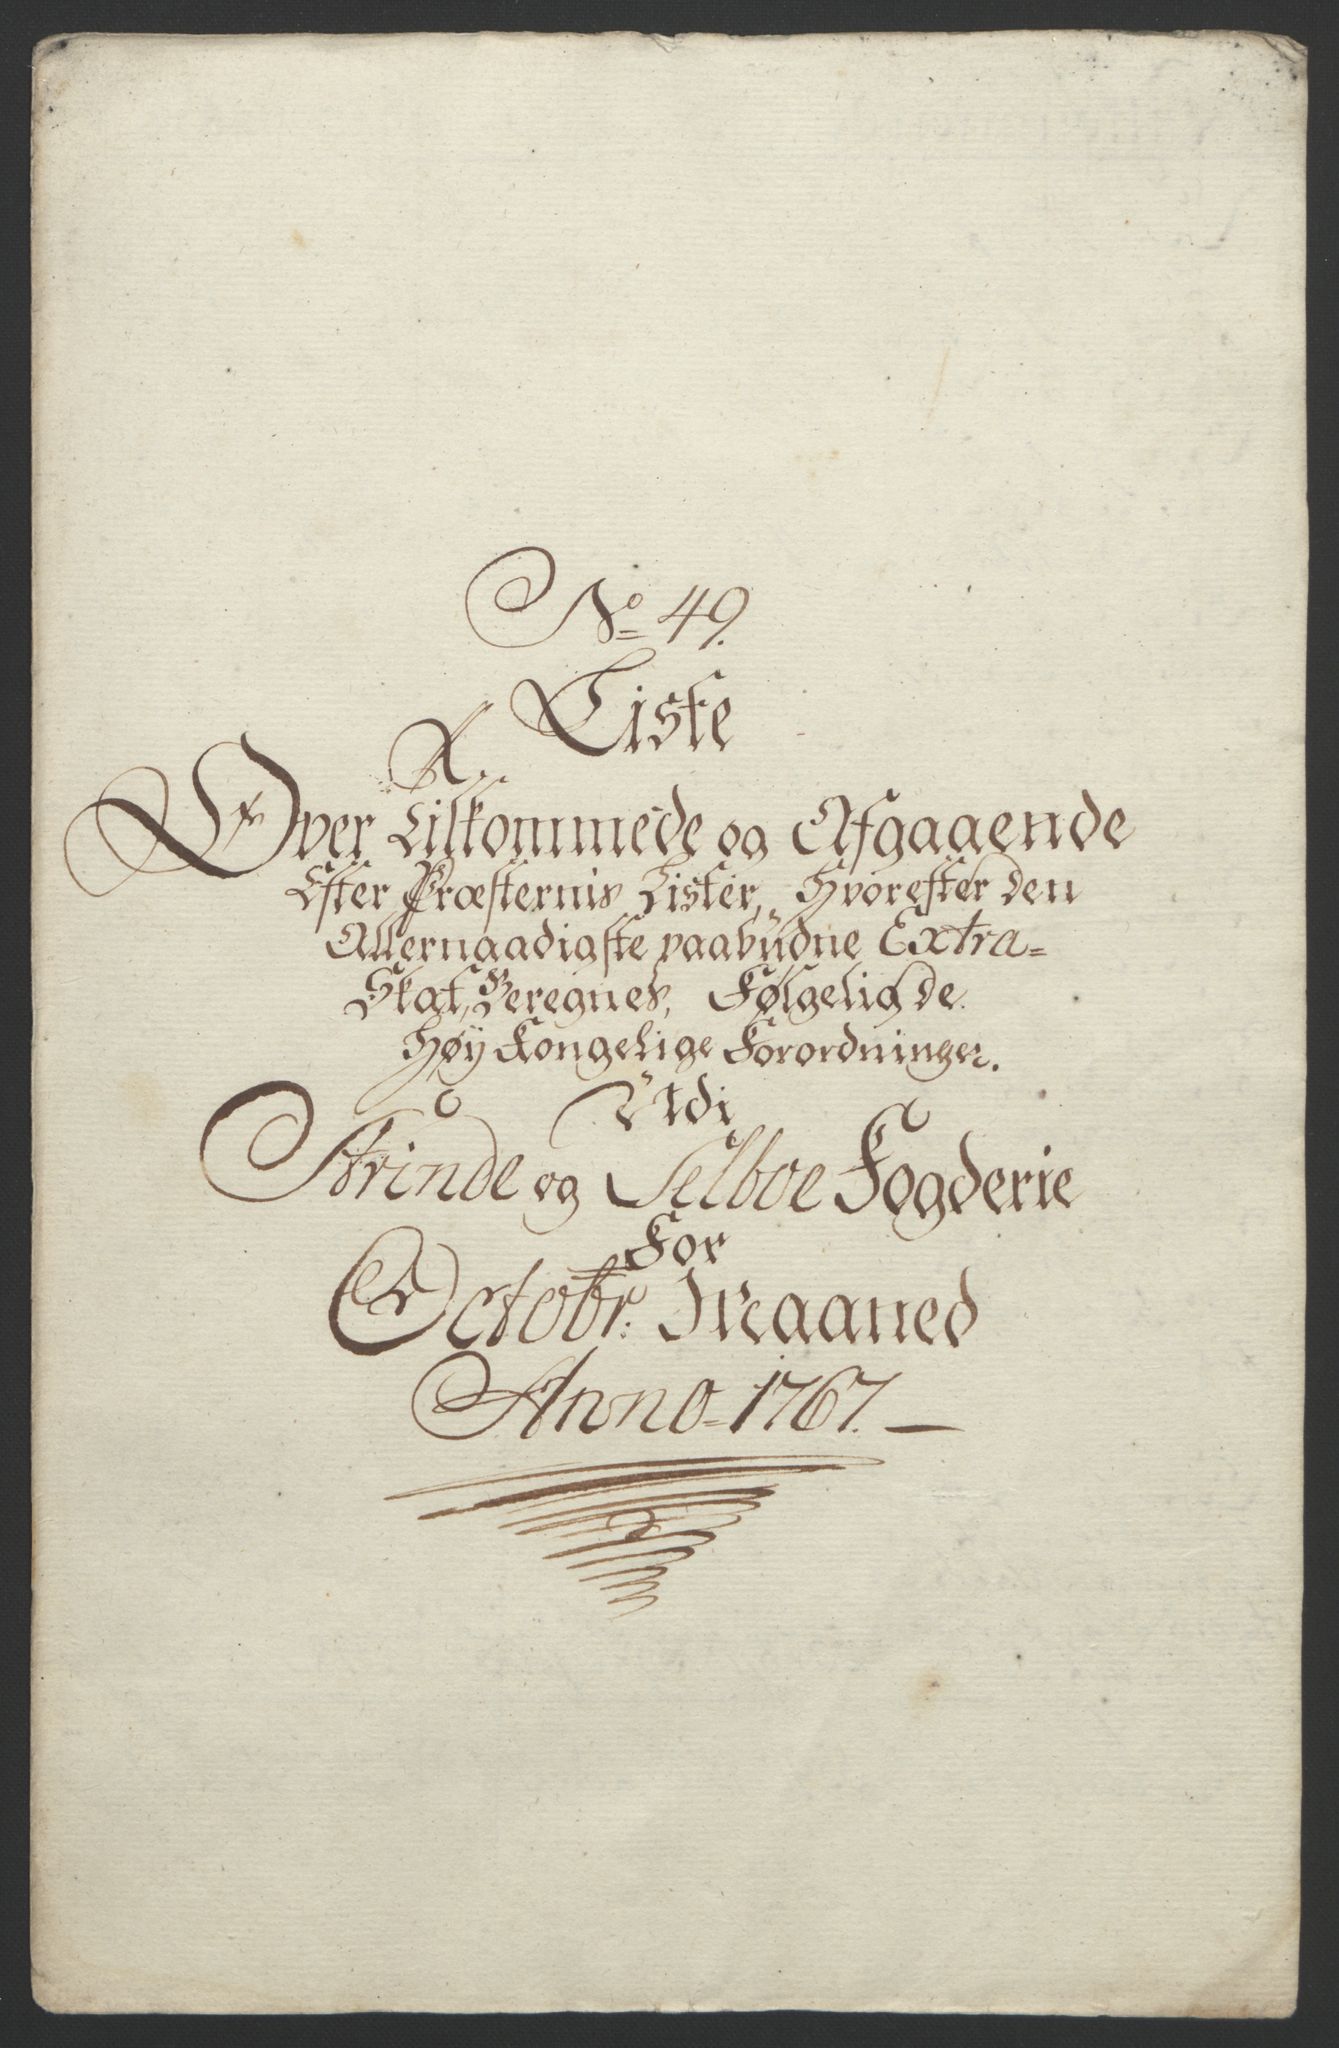 No 49.
Liste
Over Tilkommede og Afgaaende
Efter Præsternis Lister, Hvorefter den
Allernaadigste paabudne Extra-
Skat, Beregnes, Følgelig de
Høy Kongelige Forordninger.
Udi
Strinde og Selboe Fogderie
For
Octobr: Maaned
Anno 1767.